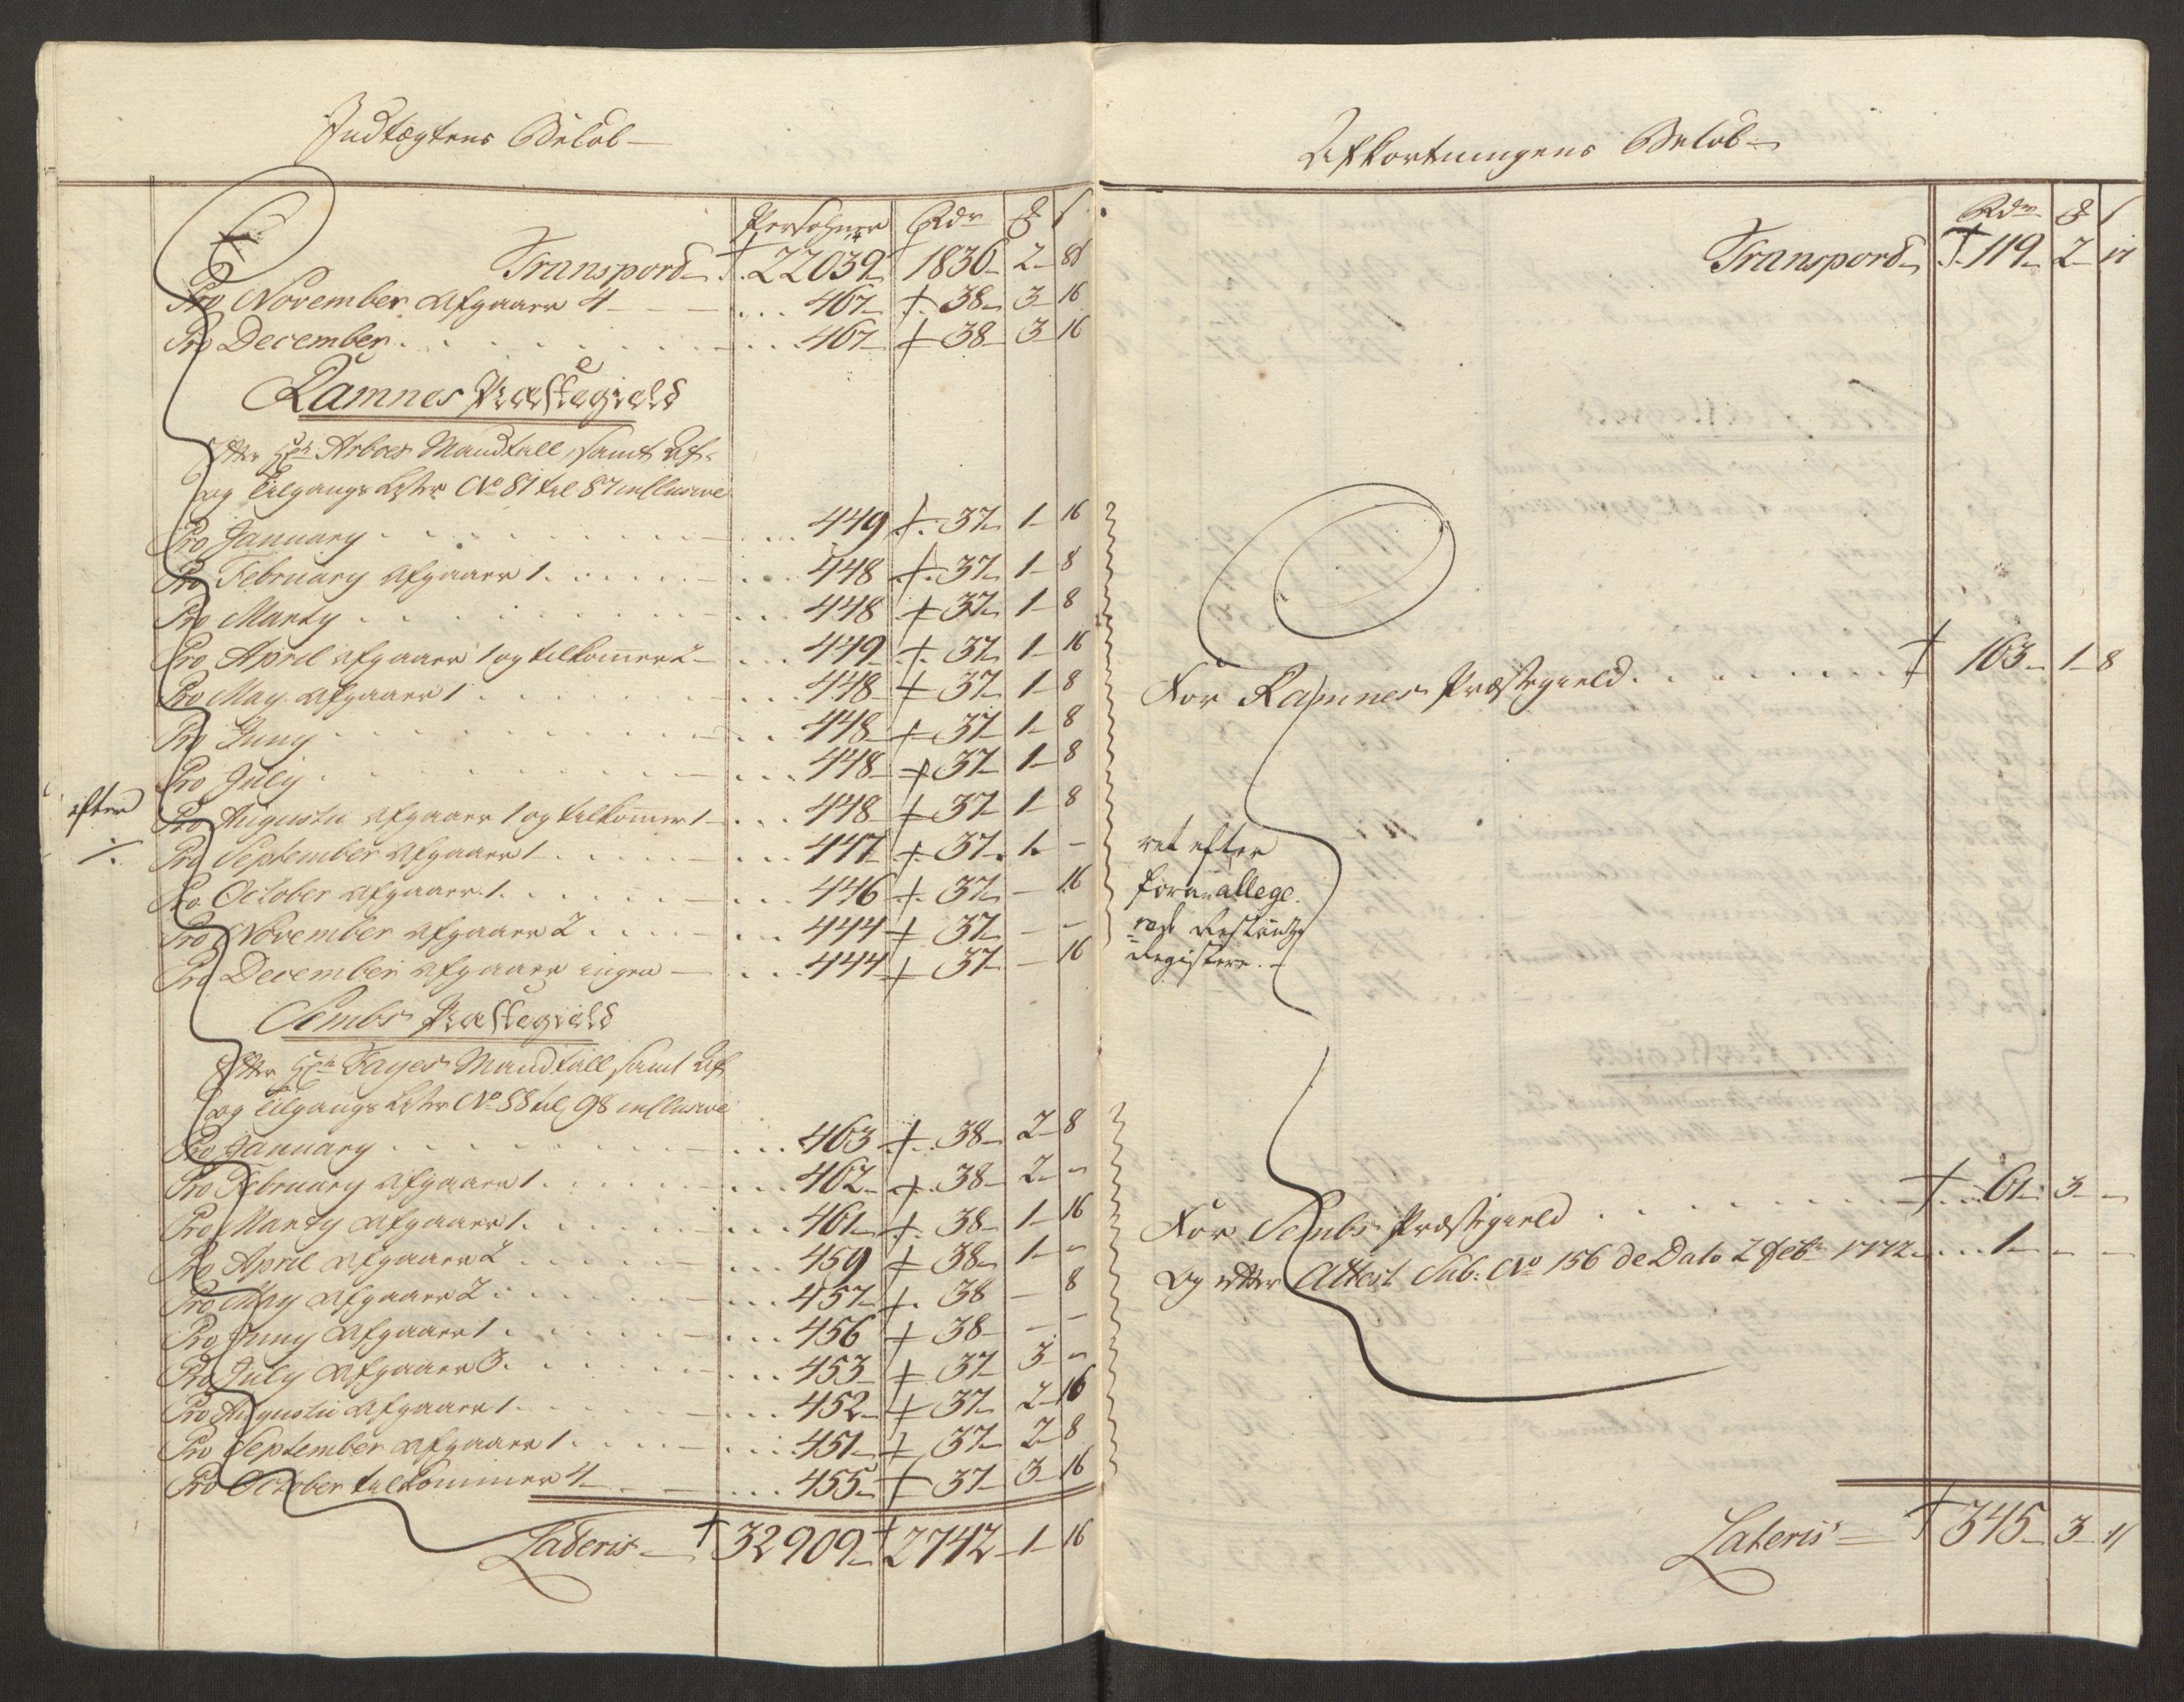 Indtægtens Beløb
Persohner Rdr ß
Transpord 22039 1836 2 8
Pro November afgaaer 4 467 38 3 16
Pro December 467 38 3 16
Ramnes Præstegield
Efter Hr Arboes Mandtall, samt Af-
og Tilgangs Lister No 81 til 87 inclusive
Pro January 449 37 1 16
Pro February afgaaer 1 448 37 1 8
Pro Marty 448 37 1 8
Pro April afgaaer 1 og tilkommer 2 449 37 1 16
Pro May afgaaer 1 448 37 1 8
Pro Juny 448 37 1 8
Pro July 448 37 1 8
efter
Pro Augusti afgaaer 1 og tilkommer 1 448 37 1 8
Pro September afgaaer 1 447 37 1 -
Pro October afgaaer 1 446 37 - 16
Pro November afgaaer 2 444 37 - -
Pro December afgaaer ingen 444 37 - 16
Sembs Præstegield
Efter Hr Fayes Mandtall, samt Af
og Tilgangs Lister No 88 til 98 inclusive
Pro January 463 38 2 8
Pro February afgaaer 1 462 38 2 -
Pro Marty afgaaer 1 461 38 1 16
Pro April afgaaer 2 459 38 1 -
Pro May afgaaer 2 457 38 - 8
Pro Juny afgaaer 1 456 38 - -
Pro July afgaaer 3 453 37 3 -
Pro Augusti afgaaer 1 452 37 2 16
Pro September afgaaer 1 451 37 2 8
Pro October tilkommer 4 455 37 3 16
Lateris 32909 2742 1 16
Afkortningens Beløb
Rdr ß
Transpord 119 2 17
For Ramnes Præstegield 163 1 8
ret efter
foran allege-
Registere
For Sembs Præstegield 61 3 -
Og efter Attest Sub: No 156 de Dato 2 febr 1772 1 - -
Lateris 345 3 11